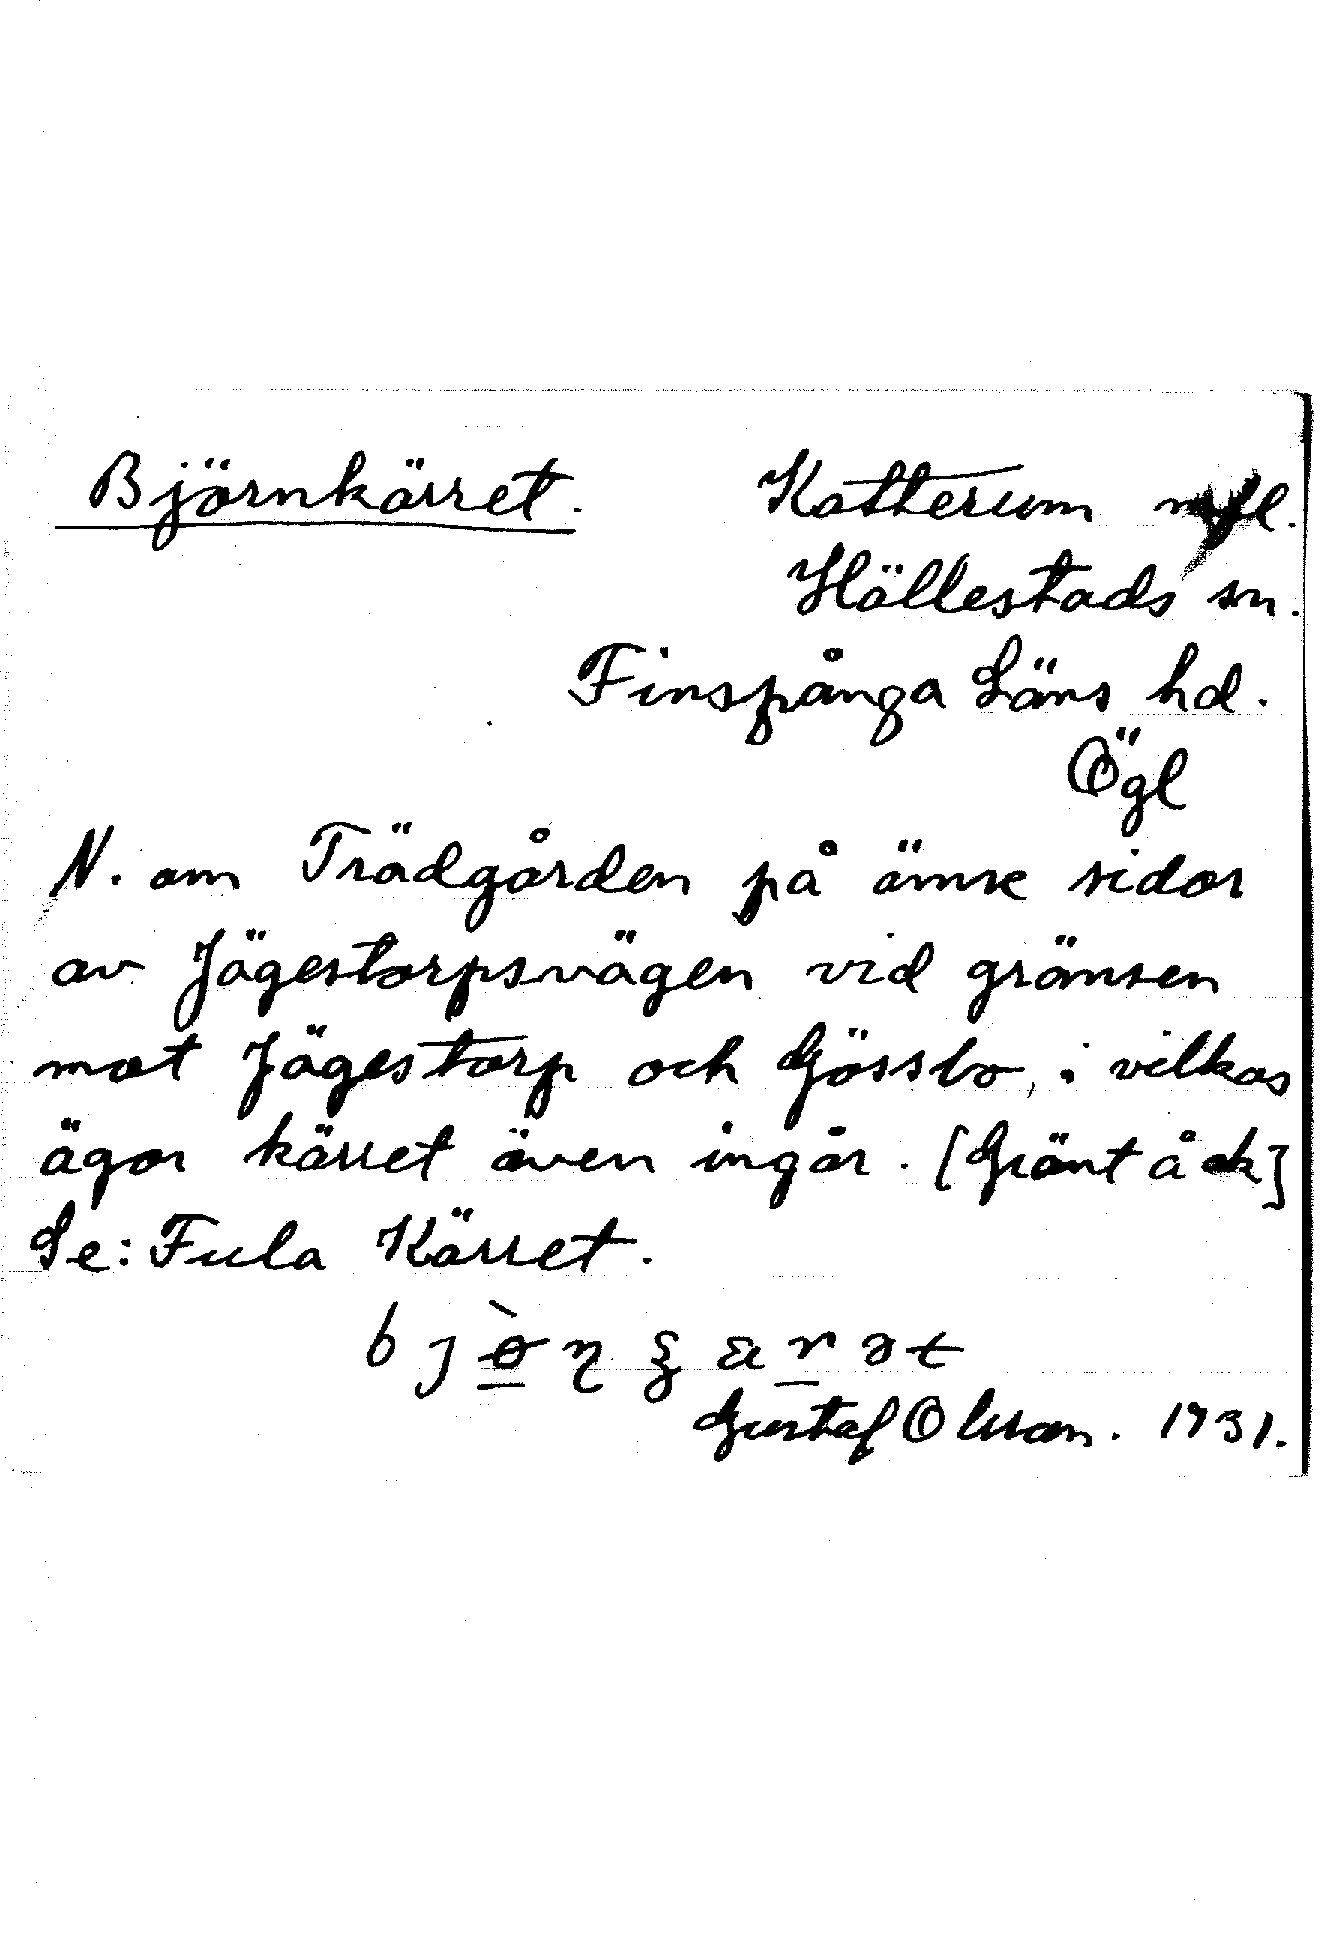 Björnkärret. Katterum mfl.
Hällestads sn.
Finspånga Läns hd.
Ögl
N. om Trädgården på ömse sidor
av Jägestorpsvägen vid gränsen
mot Jägestorp och Gössbo, i vilkas
ägor kärret även ingår. [Gränt åck]
Se: Fula Kärret.
Gustaf Olsson. 1931.